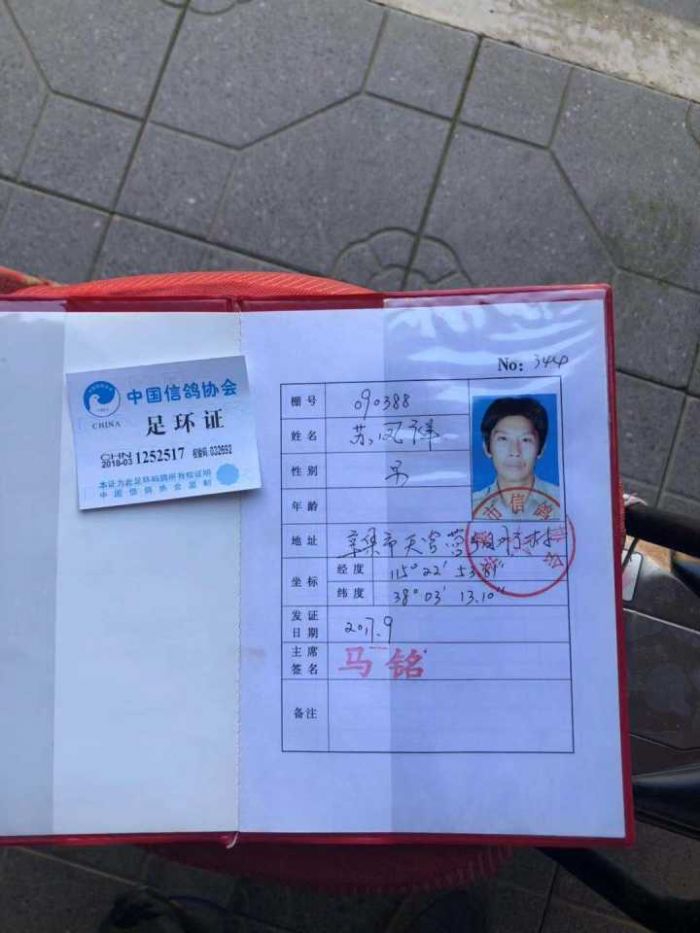 中国信鸽协会
CHINA
足环证
CHN
2018-03 1252517 校验码:032692
本证为此足环鸽所有权证明
中国信鸽协会监制
No: 344
棚号 090388
姓名 苏凤祥
性别 男
年龄
地址 辛集市天宫营
坐标
经度 115°22′53.81″
纬度 38°03′13.10″
发证日期 2017.9
主席签名 马铭
备注
市信鸽